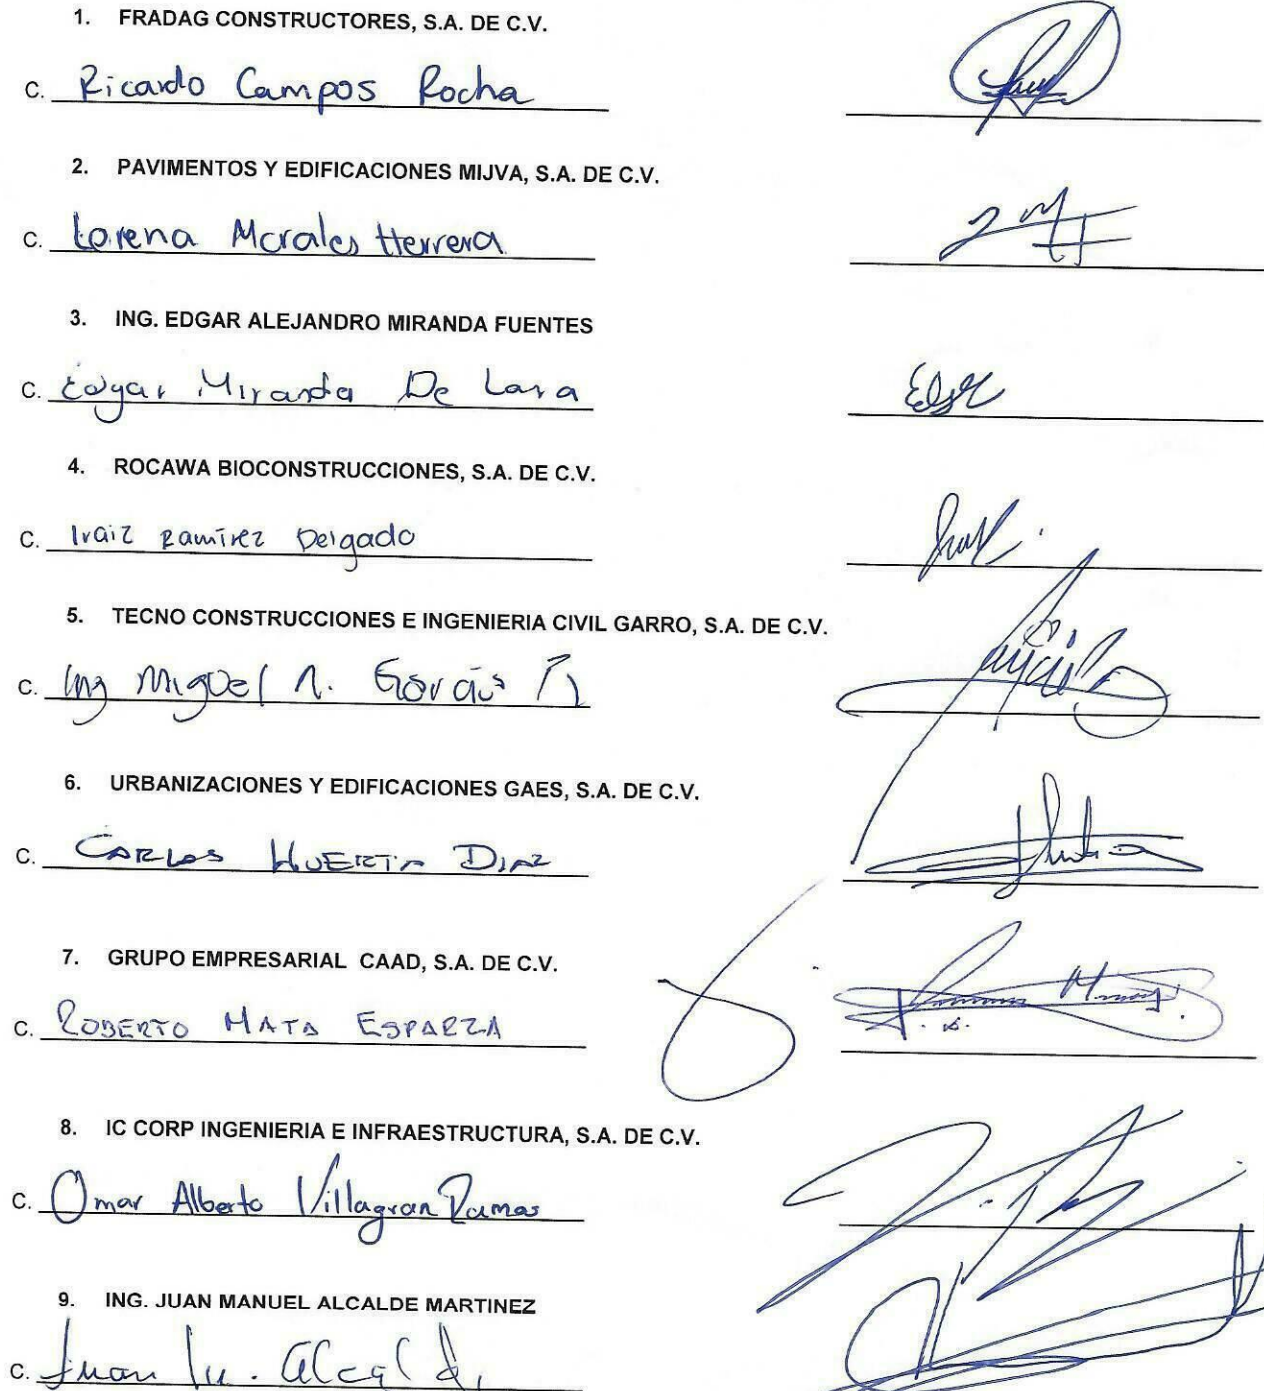 1. FRADAG CONSTRUCTORES, S.A. DE C.V.
C. Ricardo Campos Rocha
2. PAVIMENTOS Y EDIFICACIONES MIJVA, S.A. DE C.V.
C. Lorena Morales Herrera
3. ING. EDGAR ALEJANDRO MIRANDA FUENTES
C. Edgar Miranda De Lara
4. ROCAWA BIOCONSTRUCCIONES, S.A. DE C.V.
C. Iraiz Ramírez Delgado
5. TECNO CONSTRUCCIONES E INGENIERIA CIVIL GARRO, S.A. DE C.V.
C. Ing Miguel A. García
6. URBANIZACIONES Y EDIFICACIONES GAES, S.A. DE C.V.
C. CARLOS HUERTA DIAZ
7. GRUPO EMPRESARIAL CAAD, S.A. DE C.V.
C. ROBERTO MATA ESPARZA
8. IC CORP INGENIERIA E INFRAESTRUCTURA, S.A. DE C.V.
C. Omar Alberto Villagran Ramos
9. ING. JUAN MANUEL ALCALDE MARTINEZ
C. Juan M. Alcalde